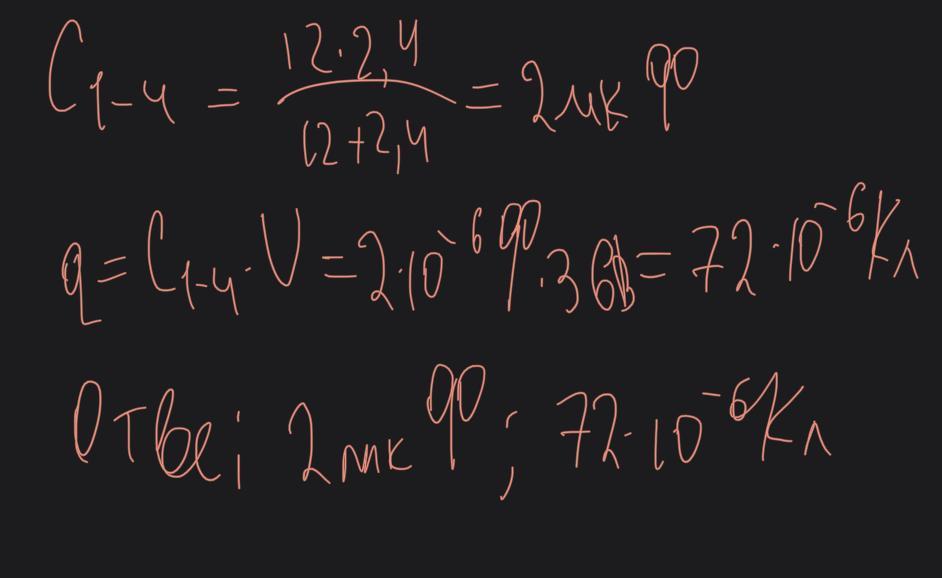 C₁₋₄ = (12·2,4)/(12+2,4) = 2мкФ
q = C₁₋₄·U = 2·10⁻⁶Ф·36В = 72·10⁻⁶Кл
Ответ: 2мкФ; 72·10⁻⁶Кл